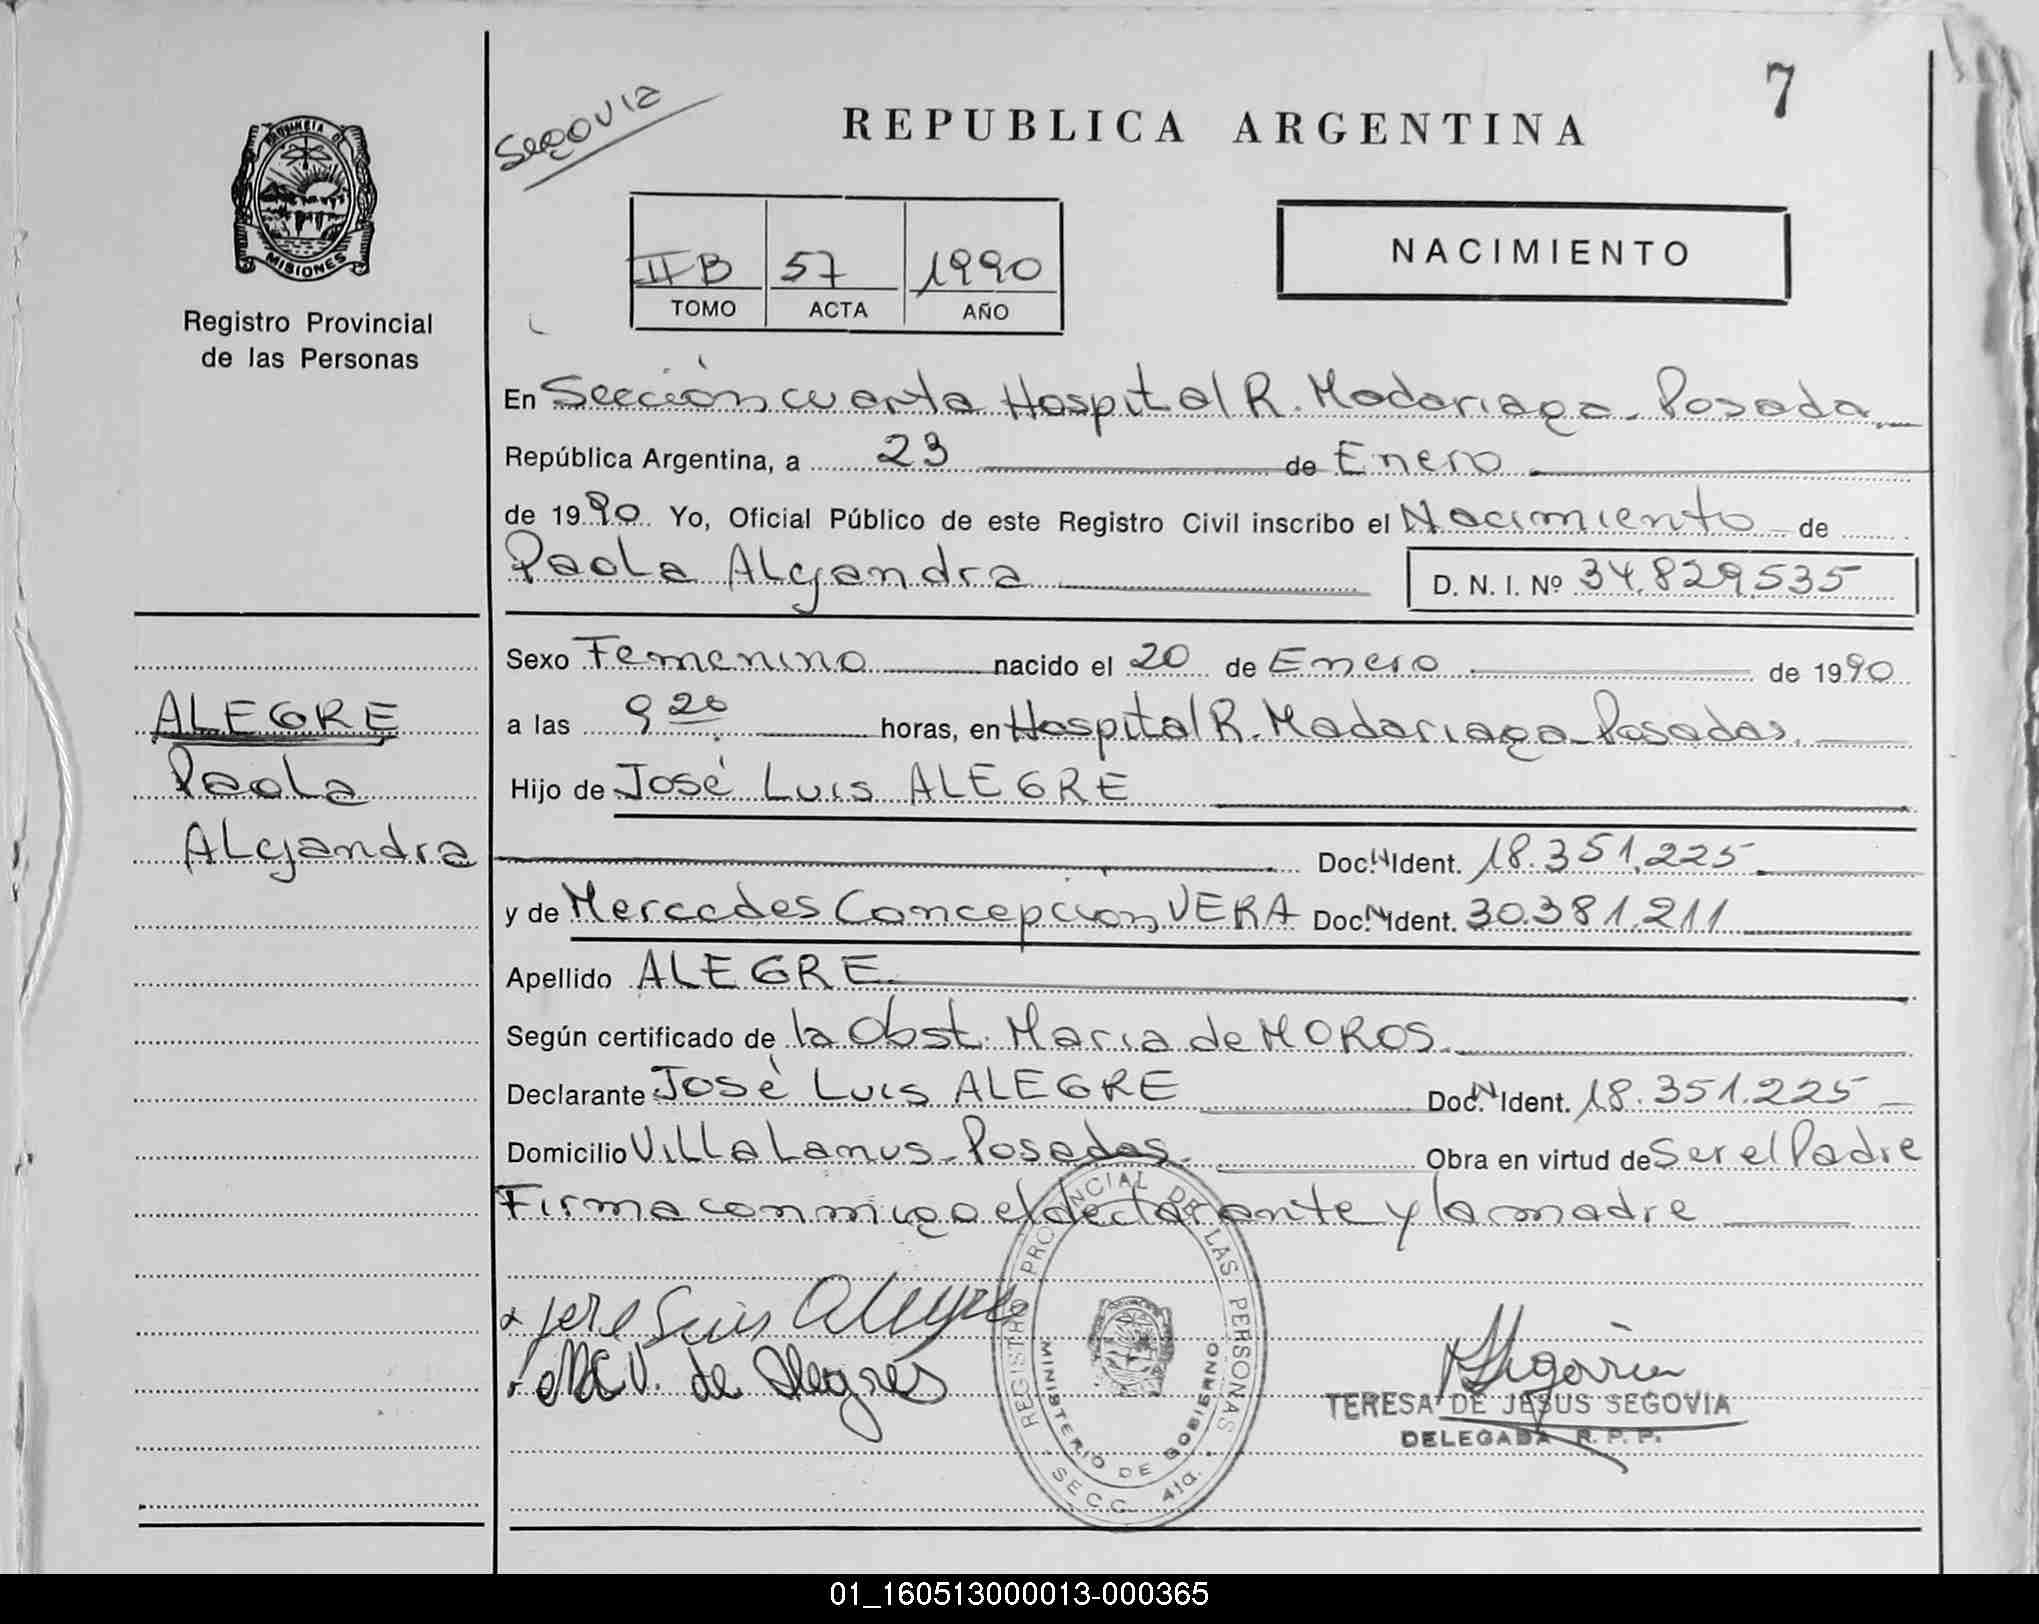 7
Segovia
REPUBLICA ARGENTINA
PROVINCIA DE
MISIONES
Registro Provincial
de las Personas
IIB 57 1990
TOMO ACTA AÑO
NACIMIENTO
En Sección cuarta Hospital R. Madariaga - Posadas
República Argentina, a 23 de Enero
de 1990 Yo, Oficial Público de este Registro Civil inscribo el Nacimiento de
Paola Alejandra D. N. I. Nº 34.829.535
Sexo Femenino nacido el 20 de Enero de 1990
ALEGRE
Paola
Alejandra
a las 9 20 horas, en Hospital R. Madariaga - Posadas.
Hijo de José Luis ALEGRE
Doc. N Ident. 18.351.225
y de Mercedes Concepcion VERA Doc. N Ident. 30.381.211
Apellido ALEGRE
Según certificado de la Obst. Maria de MOROS
Declarante José Luis ALEGRE Doc. N Ident. 18.351.225
Domicilio Villa Lanus - Posadas Obra en virtud de Ser el Padre
Firma conmigo el declarante y la madre
x jose Luis Alegre
M C V. de Alegres
REGISTRO PROVINCIAL DE LAS PERSONAS
MINISTERIO DE GOBIERNO
SECC. 4ta.
Segovia
TERESA DE JESUS SEGOVIA
DELEGADA R. P. P.
01_160513000013-000365